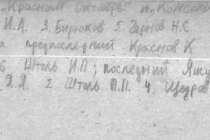 "Красный Октябрь" п.
И.А. 3. Бирюков 5. Зернов Н.С
предпоследний Краснов К
Шталь И.П; последний Яку
Я.Я. 2 Шталь П.П. 4. Щедров